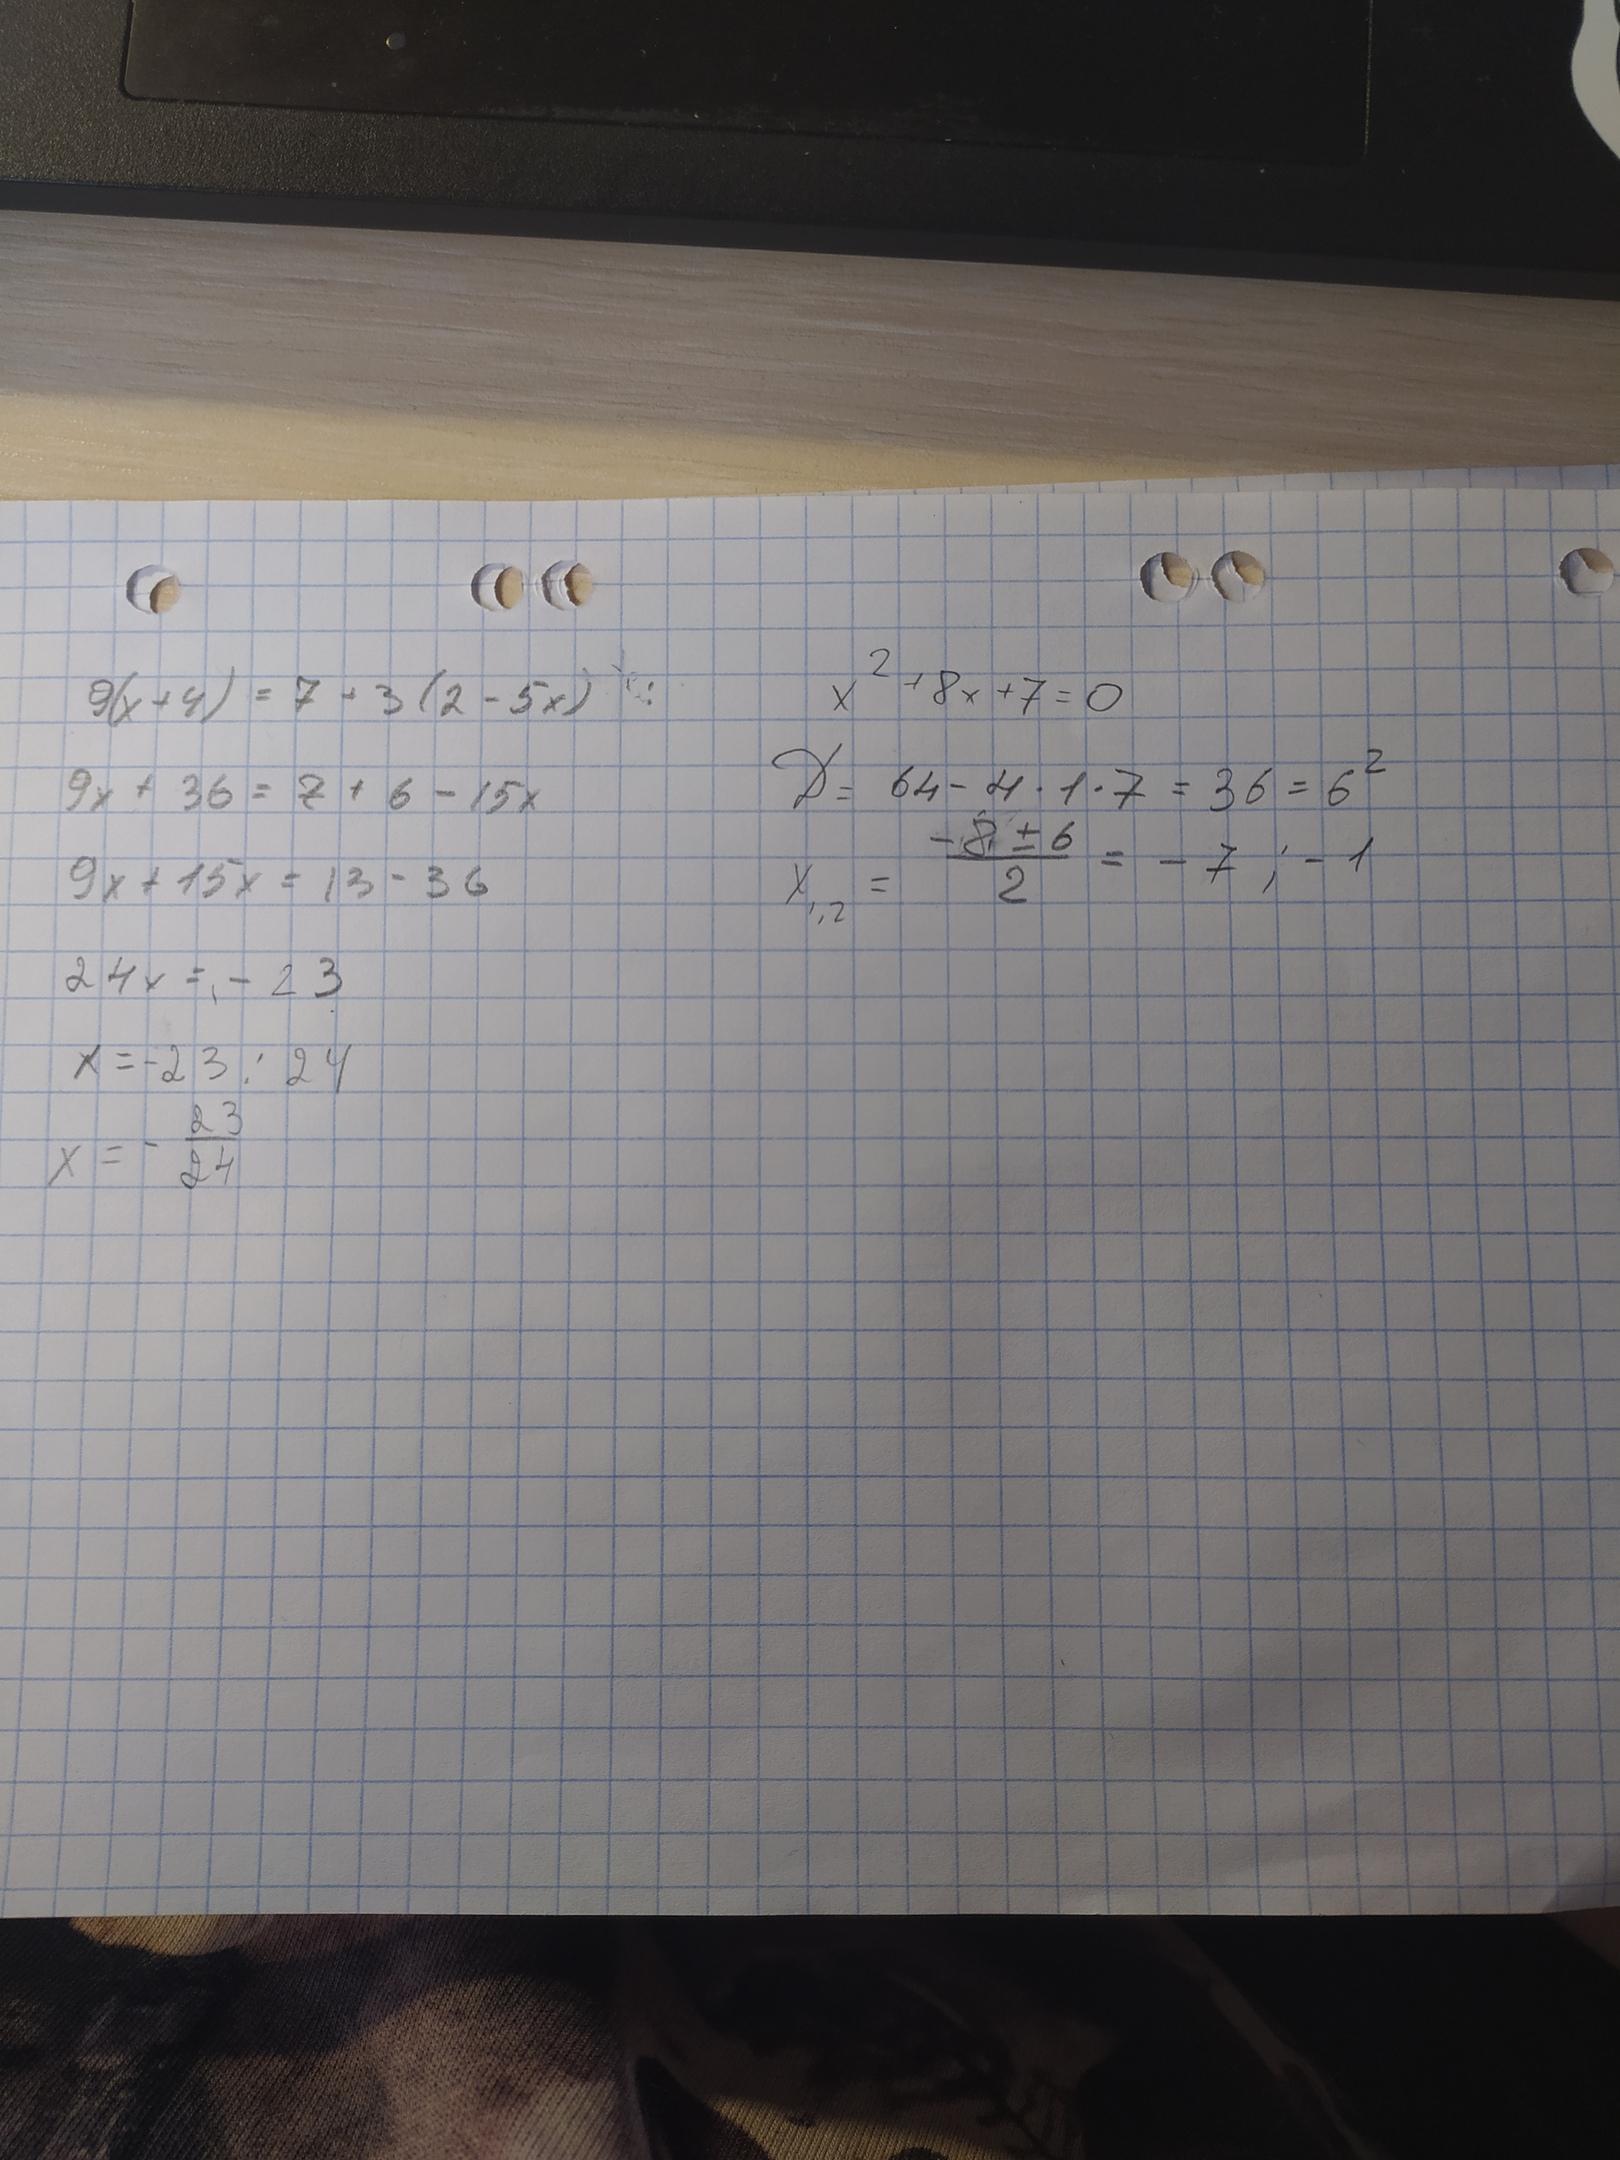 9(x+4) = 7 + 3(2 - 5x)
9x + 36 = 7 + 6 - 15x
9x + 15x = 13 - 36
24x = - 23
x = -23 : 24
x = - 23/24
x² + 8x + 7 = 0
D = 64 - 4 · 1 · 7 = 36 = 6²
x₁,₂ = (-8 ± 6)/2 = - 7 ; - 1